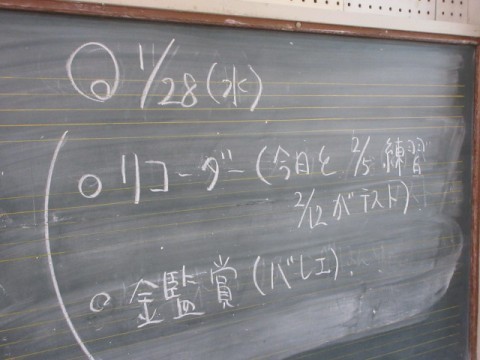 ◎ 11/28(水)
○リコーダー(今日と 2/5 練習
2/12がテスト)
○金監賞(バレエ).